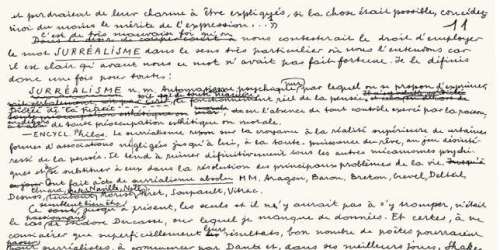 et perdraient de leur charme à être expliqués, si la chose était possible, concédez
moi du moins le mérite de l'expression...
11
C'est de très mauvaise foi qu'on nous contesterait le droit d'employer
le mot SURRÉALISME dans le sens très particulier où nous l'entendons car
il est clair qu'avant nous ce mot n'avait pas fait fortune. Je le définis
donc une fois pour toutes:
SURRÉALISME n. m. Automatisme psychique pur par lequel on se propose d'exprimer,
soit verbalement, soit par écrit, le fonctionnement réel de la pensée.
Dictée de la pensée en l'absence de tout contrôle exercé par la raison,
en dehors de toute préoccupation esthétique ou morale.
—ENCYCL. Philos. Le surréalisme repose sur la croyance à la réalité supérieure de certaines
formes d'associations négligées jusqu'à lui, à la toute-puissance du rêve, au jeu désinté-
ressé de la pensée. Il tend à ruiner définitivement tous les autres mécanismes psychi-
ques et à se substituer à eux dans la résolution des principaux problèmes de la vie.
Ont fait acte de surréalisme absolu MM. Aragon, Baron, Breton, Crevel, Delteil,
Desnos, Éluard, Naville, Noll, Péret, Soupault, Vitrac.
Ce sont, jusqu'à présent, les seuls et il n'y aurait pas à s'y tromper, n'était
le cas d'Isidore Ducasse, sur lequel je manque de données. Et certes, à ne
considérer que superficiellement leurs résultats, bon nombre de poètes pourraient
passer pour surréalistes, à commencer par Dante et, dans ses meilleurs jours, Shake